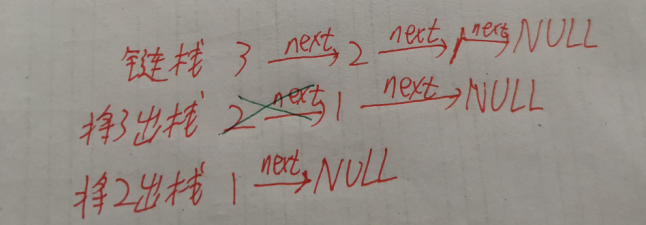 链栈 3 next→ 2 next→ 1 next→ NULL
将3出栈 2 next→ 1 next→ NULL
将2出栈 1 next→ NULL